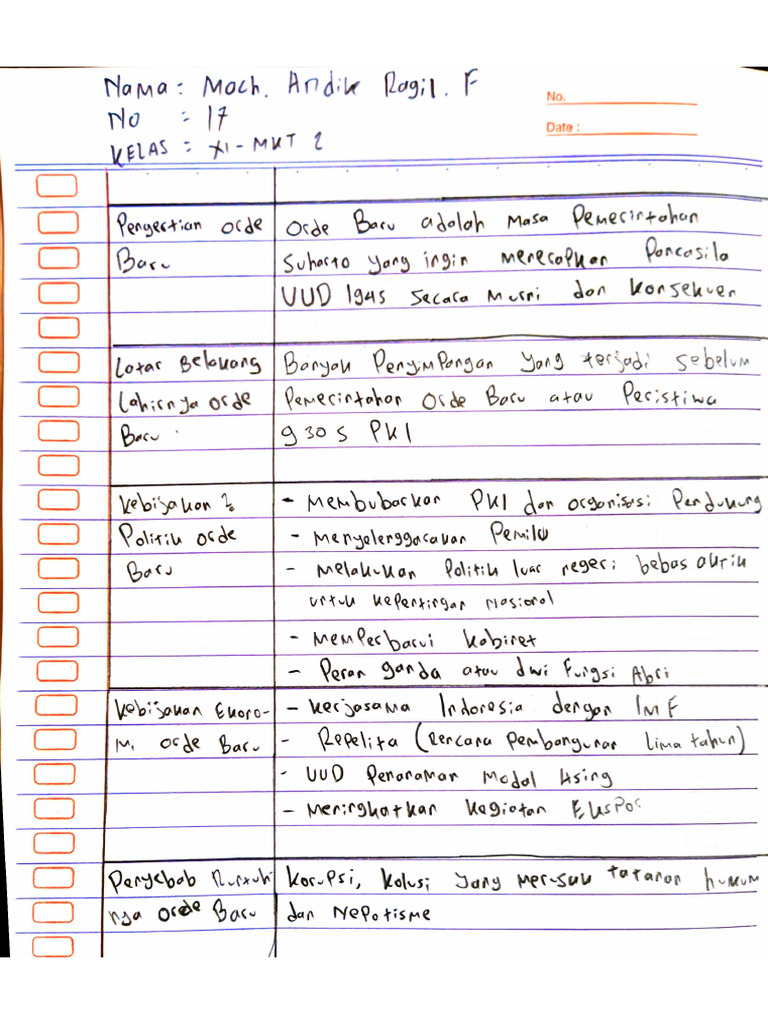 Nama : Moch. Andik Ragil. F
No.
No = 17
Date :
KELAS = XI - MKT 2
Pengertian Orde Orde Baru adalah masa Pemerintahan
Baru Suharto yang ingin menerapkan Pancasila
UUD 1945 secara murni dan konsekuen
Latar Belakang Banyak Penyimpangan yang terjadi sebelum
Lahirnya Orde Pemerintahan Orde Baru atau Peristiwa
Baru. g 30 s PKI
Kebijakan2 - Membubarkan PKI dan organisasi Pendukung
Politik Orde - Menyelenggarakan Pemilu
Baru - Melakukan Politik luar negeri bebas aktik
untuk kepentingan Nasional
- Memperbarui kabinet
- Peran ganda atau dwi Fungsi Abri
Kebijakan Ekono- - Kerjasama Indonesia dengan IMF
Mi Orde Baru - Repelita (Rencana Pembangunan lima tahun)
- UUD Penanaman Modal Asing
- Meningkatkan kegiatan Ekspor
Penyebab Runtuh Korupsi, Kolusi yang merusak tatanan hukum
nya Orde Baru dan Nepotisme